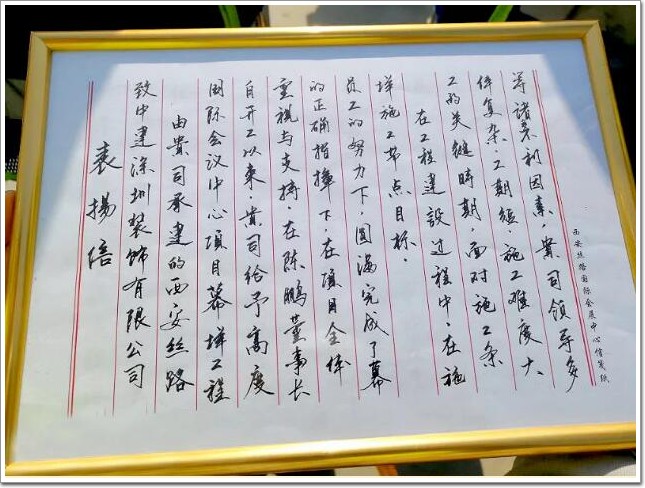 表揚信
致中建深圳装饰有限公司
由貴司承建的西安丝路
国际会议中心項目幕墙工程
自开工以来,貴司给予高度
重視与支持,在陈鹏董事长
的正确指挥下,在項目全体
员工的努力下,圆满完成了幕
墙施工节点目标。
在工程建設过程中,在施
工的关键時期,面对施工条
件复杂、工期短、施工难度大
等诸多不利因素,貴司领导多
西安丝路国际会展中心信笺纸